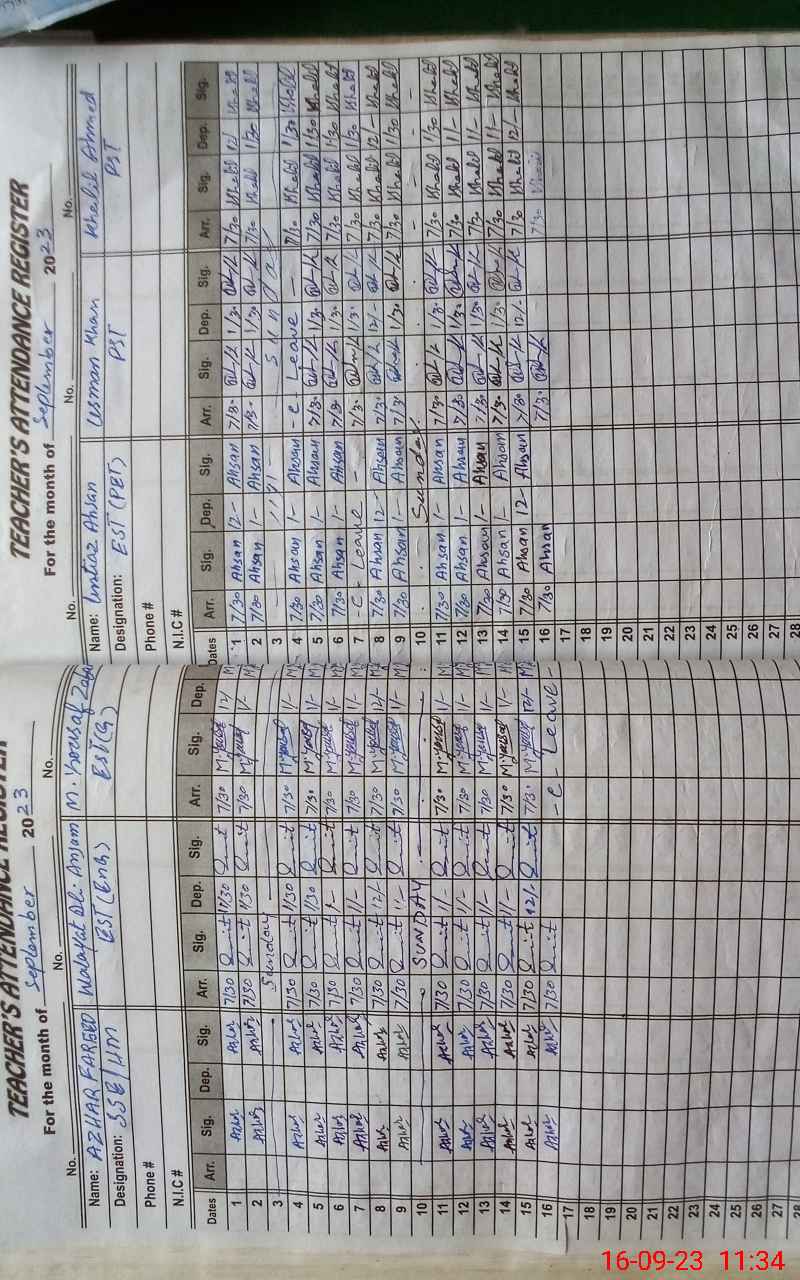 TEACHER'S ATTENDANCE REGISTER
For the month of September 2023
No. No. No.
Name: AZHAR FAREED Walayat Ali Anjam M. Yousaf
Designation: SSE/HM EST (Eng) EST(G)
Phone #
N.I.C #
Dates Arr. Sig. Dep. Sig. Arr. Sig. Dep. Sig. Arr. Sig. Dep.
1 Azhar Azhar 7/30 1/30 7/30 M.Yousaf 12/
2 Azhar Azhar 7/30 1/30 7/30 M.Yousaf 1/-
3 Sunday
4 Azhar Azhar 7/30 1/30 7/30 M.Yousaf 1/-
5 Azhar Azhar 7/30 1/30 7/30 M.Yousaf 1/-
6 Azhar Azhar 7/30 1/- 7/30 M.Yousaf 1/-
7 Azhar Azhar 7/30 1/- 7/30 M.Yousaf 1/-
8 Azhar Azhar 7/30 12/- 7/30 M.Yousaf 12/-
9 Azhar Azhar 7/30 1/- 7/30 M.Yousaf 1/-
10 SUNDAY
11 Azhar Azhar 7/30 1/- 7/30 M.Yousaf 1/-
12 Azhar Azhar 7/30 1/- 7/30 M.Yousaf 1/-
13 Azhar Azhar 7/30 1/- 7/30 M.Yousaf 1/-
14 Azhar Azhar 7/30 1/- 7/30 M.Yousaf 1/-
15 Azhar Azhar 7/30 12/- 7/30 M.Yousaf 12/-
16 Azhar Azhar 7/30 - C - Leave -
17
18
19
20
21
22
23
24
25
26
27
28
TEACHER'S ATTENDANCE REGISTER
For the month of September 2023
No. No. No.
Name: Imtiaz Ahsan Usman Khan Khalil Ahmed
Designation: EST (PET) PST PST
Phone #
N.I.C #
Dates Arr. Sig. Dep. Sig. Arr. Sig. Dep. Sig. Arr. Sig. Dep. Sig.
1 7/30 Ahsan 12- Ahsan 7/30 1/30 7/30 Khalil 12/ Khalil
2 7/30 Ahsan 1- Ahsan 7/30 1/30 7/30 Khalil 1/30 Khalil
3 Sunday
4 7/30 Ahsan 1- Ahsan - C - Leave - 7/30 Khalil 1/30 Khalil
5 7/30 Ahsan 1- Ahsan 7/30 1/30 7/30 Khalil 1/30 Khalil
6 7/30 Ahsan 1- Ahsan 7/30 1/30 7/30 Khalil 1/30 Khalil
7 - C - Leave - 7/30 1/30 7/30 Khalil 1/30 Khalil
8 7/30 Ahsan 12- Ahsan 7/30 12/- 7/30 Khalil 12/- Khalil
9 7/30 Ahsan 1- Ahsan 7/30 1/30 7/30 Khalil 1/30 Khalil
10 Sunday
11 7/30 Ahsan 1- Ahsan 7/30 1/30 7/30 Khalil 1/30 Khalil
12 7/30 Ahsan 1- Ahsan 7/30 1/30 7/30 Khalil 1/- Khalil
13 7/30 Ahsan 1- Ahsan 7/30 1/30 7/30 Khalil 1/- Khalil
14 7/30 Ahsan 1- Ahsan 7/30 1/30 7/30 Khalil 1/- Khalil
15 7/30 Ahsan 12- Ahsan 7/30 12/- 7/30 Khalil 12/- Khalil
16 7/30 Ahsan 7/30 7/30 Khalil
17
18
19
20
21
22
23
24
25
26
27
28
16-09-23 11:34